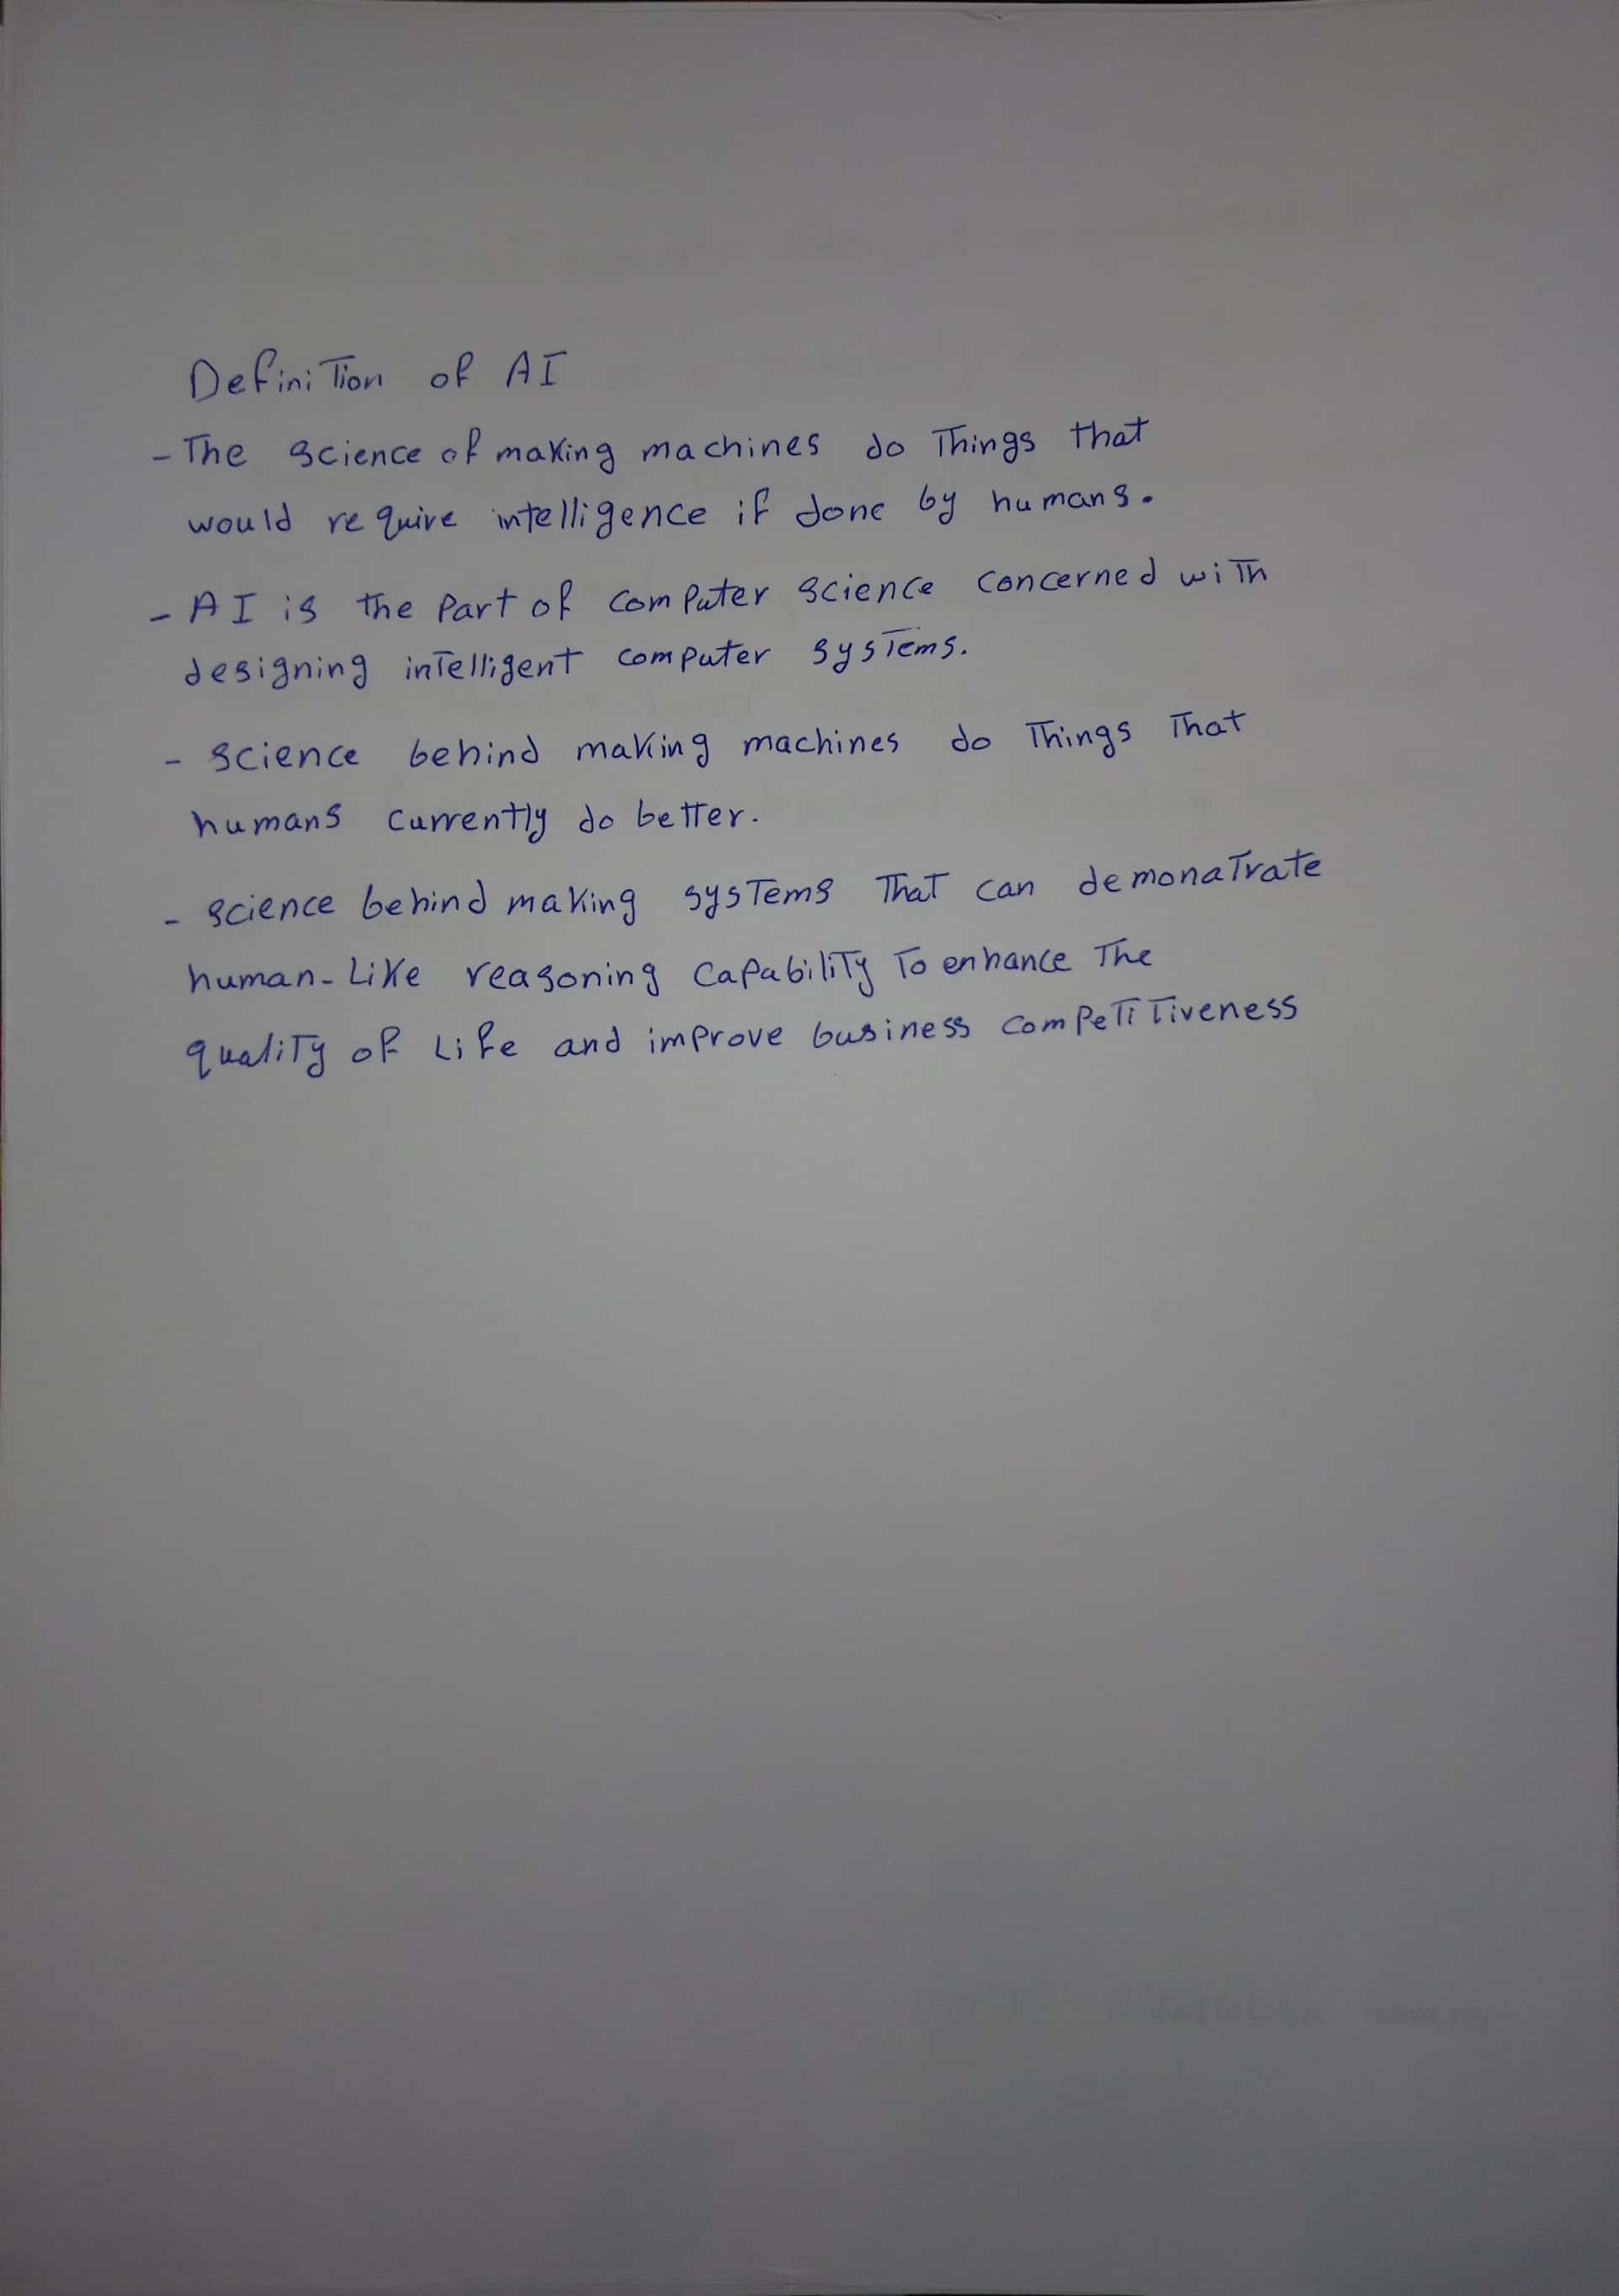 Definition of AI
- The science of making machines do Things that
would require intelligence if done by humans.
- AI is the Part of computer science concerned with
designing intelligent computer systems.
- science behind making machines do Things That
humans currently do better.
- science behind making systems That can demonatrate
human-Like reasoning capability To enhance The
quality of Life and improve business competitiveness